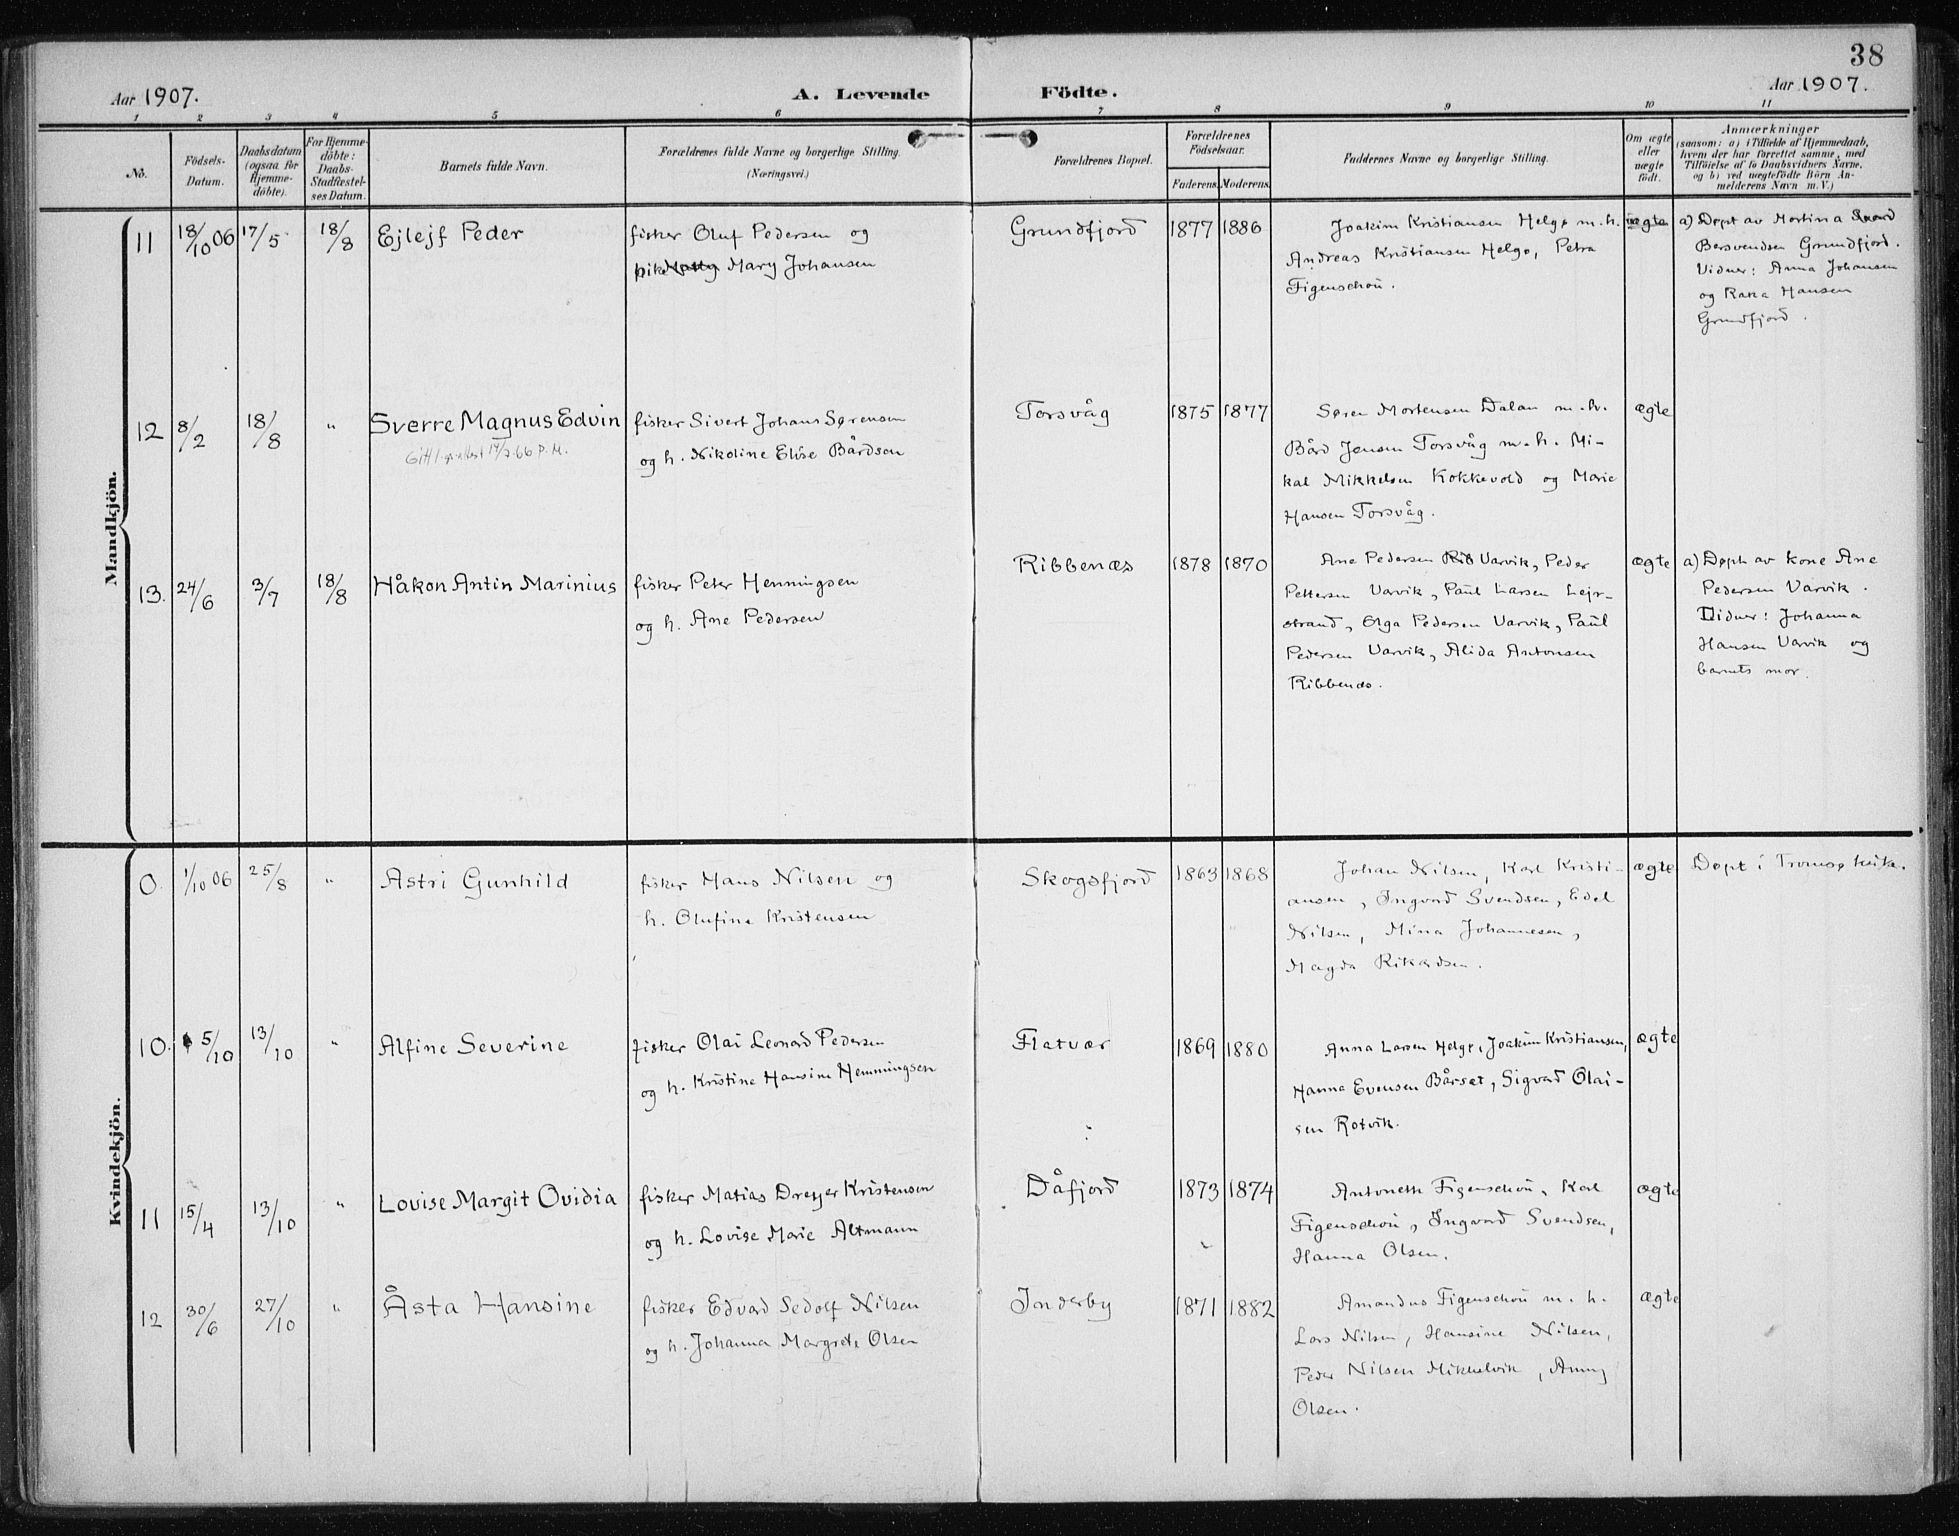 38
Aar 1907.
A. Levende
Födte.
Aar 1907.
1 2 3 4 5 6 7 8 9 10 11
No.
Födsels-
Datum.
Daabsdatum
(ogsaa for
Hjemme-
döbte).
For Hjemme-
döbte:
Daabs-
Stadfæstel-
ses Datum.
Barnets fulde Navn.
Forældrenes fulde Navne og borgerlige Stilling.
(Næringsvei.)
Forældrenes Bopæl.
Forældrenes
Födselsaar.
Faderens.
Moderens.
Faddernes Navne og borgerlige Stilling.
Om ægte
eller
uægte
födt.
Anmærkninger
(saasom: a) i Tilfælde af Hjemmedaab,
hvem der har forrettet samme, med
Tilföielse af to Daabsvidners Navne,
og b) ved uægtefödte Börn An-
melderens Navn m. V.)
Mandkjön.
11 18/10 06 17/5 18/8 Ejlejf Peder
fisker Oluf Pedersen og
pike Mary Johansen
Grundfjord 1877 1886
Joakim Kristiansen Helgø m.h.
Andreas Kristiansen Helgø, Petra
Figenschou.
uægte
a) Døpt av Martina
Bersvendsen Grundfjord.
Vidner: Anna Johansen
og Kana Hansen
Grundfjord.
12 8/2 18/8 " Sverre Magnus Edvin
14/2-66 P.M.
fisker Sivert Johans Sørensen
og h. Nikoline Elise Bårdsen
Torsvåg 1875 1877
Søren Mortensen Dalan m.h.
Bård Jensen Torsvåg m.h. Mi-
kal Mikkelsen Kokkevold og Marie
Hansen Torsvåg.
ægte
13. 24/6 3/7 18/8 Håkon Antin Marinius
fisker Peter Henningsen
og h. Ane Pedersen
Ribbenæs 1878 1870
Ane Pedersen Rib Varvik, Peder
Pettersen Varvik, Paul Larsen Lejr-
strand, Olga Pedersen Varvik, Paul
Pedersen Varvik, Alida Antonsen
Ribbenæs.
ægte
a) Døpt av kone Ane
Pedersen Varvik.
Vidner: Johanna
Hansen Varvik og
barnets mor.
Kvindekjön.
0. 1/10 06 25/8 " Astri Gunhild
fisker Hans Nilsen og
h. Olufine Kristensen
Skogsfjord 1863 1868
Johan Nilsen, Karl Kristi-
ansen, Ingvard Svendsen, Edel
Nilsen, Mina Johannesen,
Magda Rikardsen.
ægte
Døpt i Tromsø kirke.
10. 5/10 13/10 " Alfine Severine
fisker Olai Leonard Pedersen
og h. Kristine Hansine Hemmingsen
Flatvær 1869 1880
Anna Larsen Helgø, Joakim Kristiansen,
Hanna Evensen Bårset, Sigvard Olai-
sen Rotvik.
ægte
11 15/4 13/10 " Lovise Margit Ovidia
fisker Matias Dreyer Kristensen
og h. Lovise Marie Altmann
Dåfjord 1873 1874
Antoneth Figenschou, Karl
Figenschou, Ingvard Svendsen,
Hanna Olsen.
ægte
12 30/6 27/10 " Åsta Hansine
fisker Edvard Sedolf Nilsen
og h. Johanna Margrete Olsen
Inderby 1871 1882
Amandus Figenschou m.h.
Lars Nilsen, Hansine Nilsen,
Peder Nilsen Mikkelvik, Anny
Olsen.
ægte